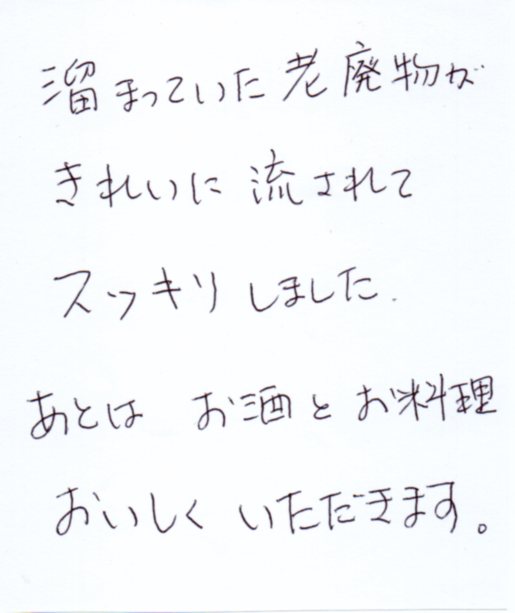 溜まっていた老廃物が
きれいに流されて
スッキリしました.
あとは お酒とお料理
おいしく いただきます。